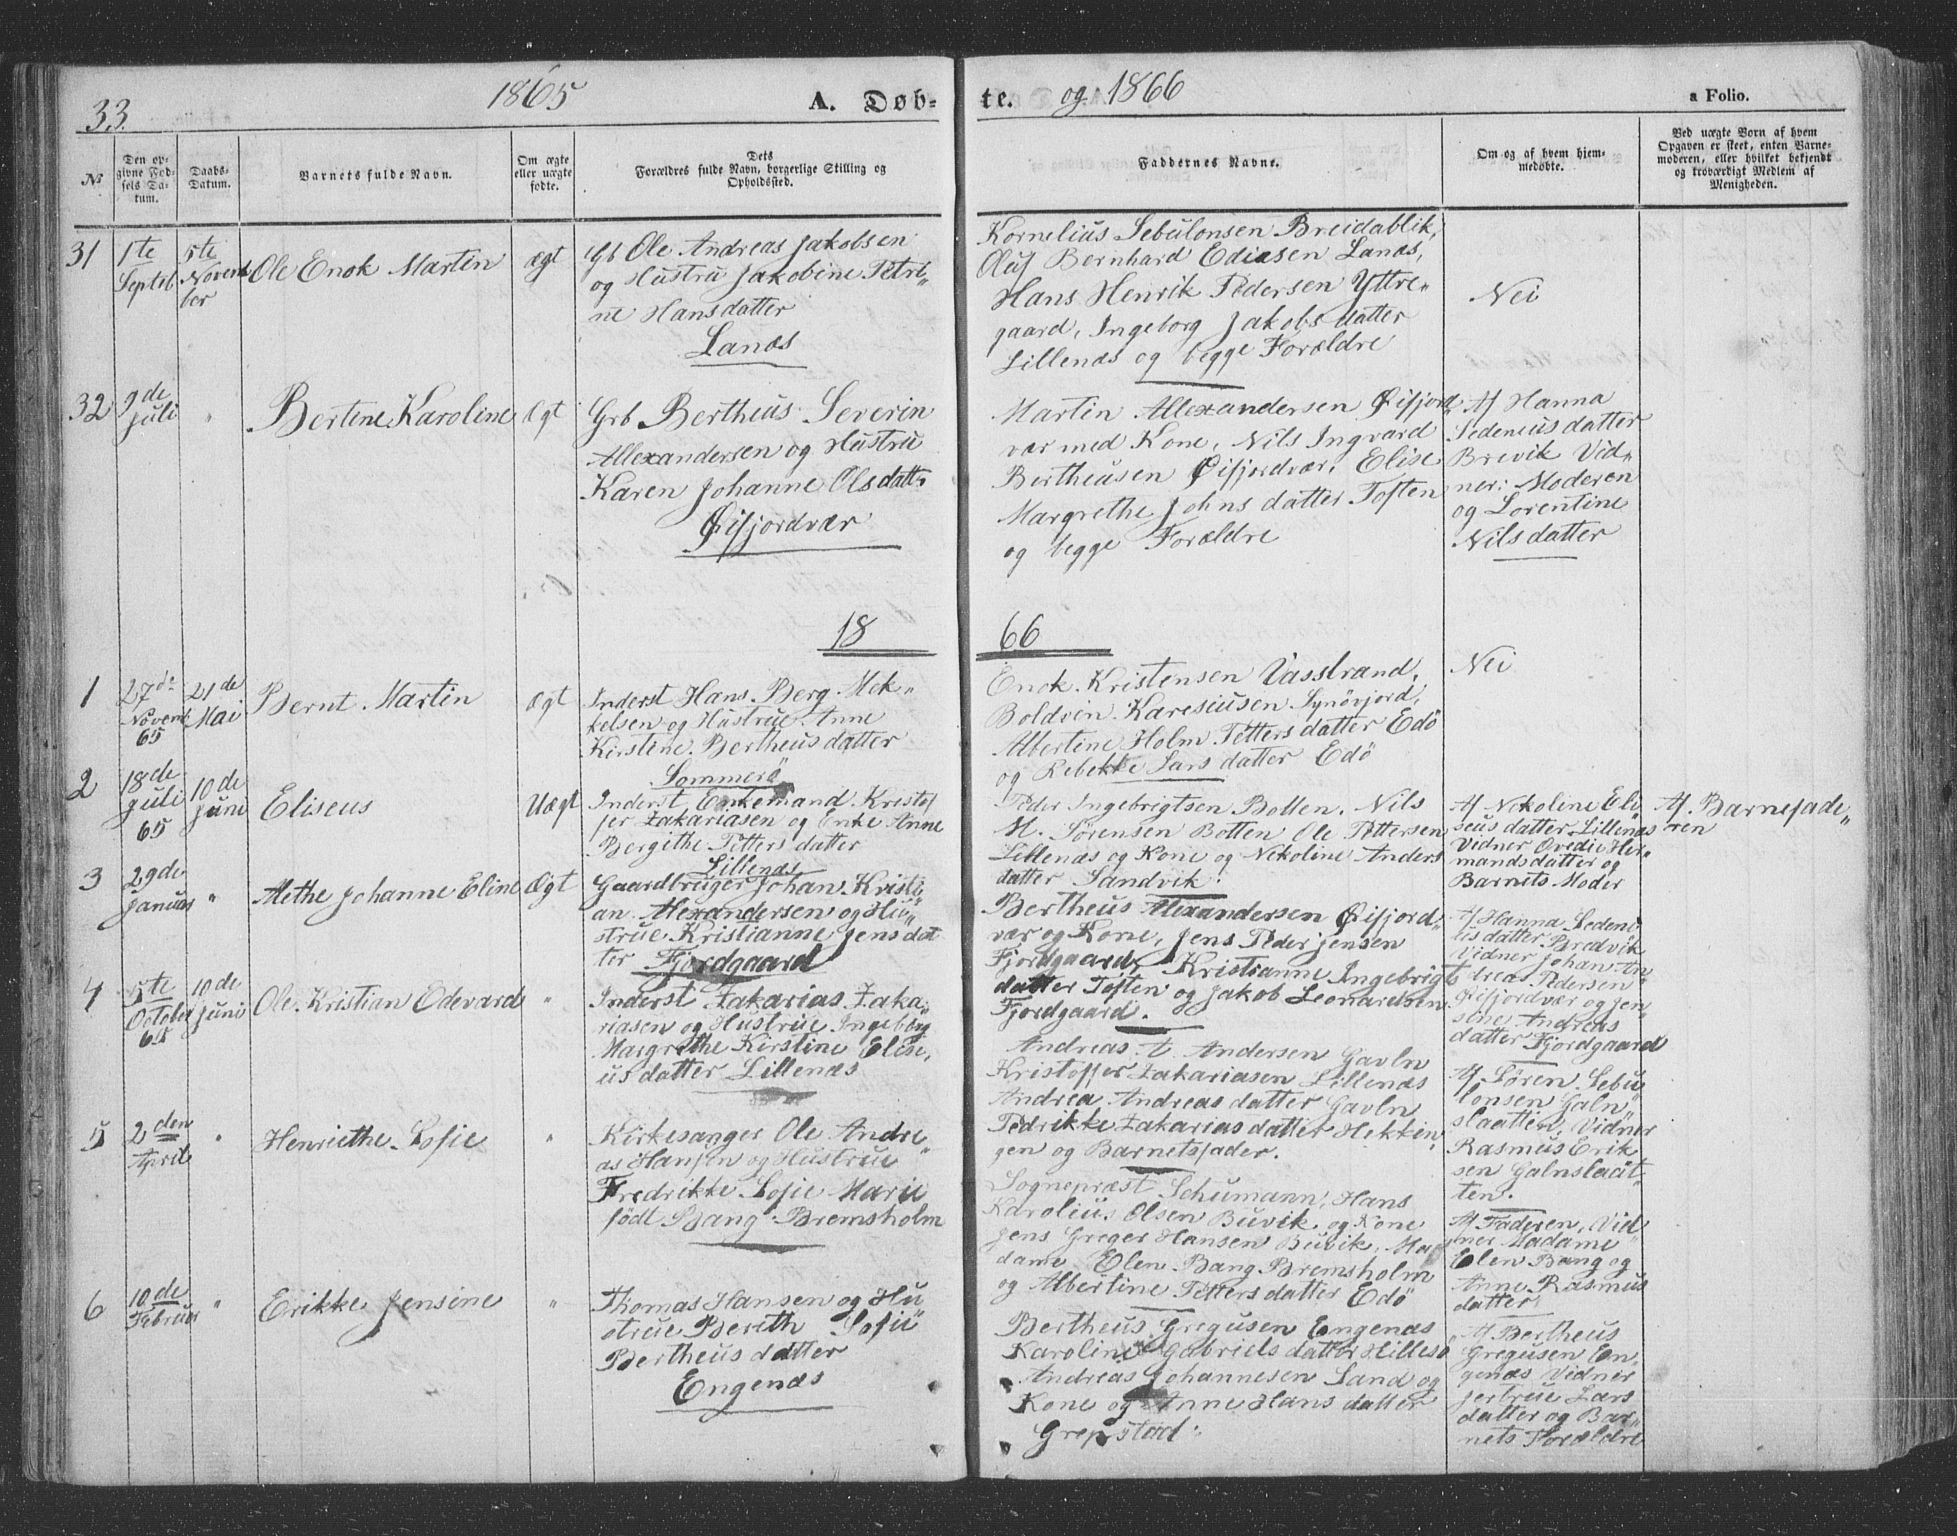 33.
1865
A. Døb-
te.
og 1866
a Folio.
№
Den op-
givne Fød-
sels Da-
tum.
Daabs-
Datum.
Barnets fulde Navn.
Om ægte
eller uægte
fødte.
Dets
Forældres fulde Navn, borgerlige Stilling og
Opholdssted.
Faddernes Navne.
Om og af hvem hjem-
medøbte.
Ved uægte Børn af hvem
Opgaven er skeet, enten Barne-
moderen, eller hvilket bekjendt
og troværdigt Medlem af
Menigheden.
31
1te
Septeb.
5te
Novem
ber
Ole Enok Martin
Ægt
Gb Ole Andreas Jakobsen
og Hustru Jakobine Petri„
ne Hansdatter
Lanæs
Kornelius Sebulonsen Breidablik,
Oluf Bernhard Ediasen Lanæs,
Hans Henrik Pedersen Yttre„
gaard, Ingeborg Jakobsdatter
Lillenæs og begge Forældre
Nei
32
9de
Juli
"
Bertine Karoline
Ægt
Grb Bertheus Severin
Allexandersen og Hustru
Karen Johanne Olsdatt.
Øifjordvær
Martin Allexandersen Øifjord
vær med Kone, Nils Ingvard
Bertheusen Øifjordvær, Elise
Margrethe Johnsdatter Toften
og begge Forældre
Af Hanna
Sedeniusdatter
Brevik Vid„
ner: Moderen
og Lorentine
Nilsdatter
18
66
1
27de
Novemb
65
21de
Mai
Bernt Martin
Ægt
Inderst Hans Berg Mek„
kelsen og Hustrue Anne
Kirstine Bertheusdatter
Sommerö
Enok Kristensen Vasstrand,
Boldvin Kareliusen Synøvjord,
Albertine Holm Pettersdatter Edö
og Rebekke Larsdatter Edö
Nei
2
18de
Juli
65
10de
Juni
Eliseus
Uægt
Inderst Enkemand Kristof
fer Zakariasen og Enke Anne
Bergithe Pettersdatter
Lillenæs
Peder Ingebrigtsen Botten, Nils
M. Sørensen Botten Ole Pettersen
Lillenæs og Kone og Nekoline Anders
datter Sandvik.
Af Nekoline Eli
seusdatter Lillenæs
Vidner Ovedie Her„
mandsdatter og
Barnets Moder
Af Barnefade„
ren
3
29de
Januar
"
Methe Johanne Eline
Ægt
Gaardbruger Johan Kristi„
an Alexandersen og Hu„
strue Kristianne Jensdat
ter Fjordgaard
Bertheus Alexandersen Øifjord„
vær og Kone, Jens Peder Jensen
Fjordgaard, Kristianne Ingebrigt
datter Toften og Jakob Leonardsen
Fjordgaard.
Af Hanna Sedeni
usdatter Bredvik
Vidner Johan An
dreas Pedersen
Øifjordvær og Jen„
sine Andreas
datter Fjordgaard
4
5te
October
65
10de
Juni
Ole Kristian Edevard
"
Inderst Zakarias Zaka„
riasen og Hustrue Ingeborg
Margrethe Kirstine Elise„
usdatter Lillenæs
Andreas A. Andersen Gavln
Kristoffer Zakariasen Lillenæs
Andrea Andreasdatter Gavln
Pedrikke Zakariasdatter Hekkin„
gen og Barnetsfader.
Af Sören Sebu
lonsen Galn„
slaatten, Vidner
Rasmus Erik
sen Galnslaat„
ten.
5
2den
April
"
Henriethe Sofie
"
Kirkesanger Ole Andre„
as Hansen og Hustrue
Fredrikke Sofie Marie
født Bang Bremsholm
Sognepræst Schumann, Hans
Karolius Olsen Buvik og Kone
Jens Greger Hansen Buvik, Ma„
dame Elen Bang Bremsholm
og Albertine Pettersdatter Edö
Af Faderen, Vid
ner Madame
Elen Bang og
Anne Rasmus
datter
6
10de
Februar
"
Erikke Jensine
"
Thomas Hansen og Hu
strue Berith Sofie
Bertheusdatter
Engenæs
Bertheus Gregusen Engenæs
Karoline Gabrielsdatter Hillesø
Andreas Johannesen Sand og
Kone og Anne Hansdatter
Grepstad.
Af Bertheus
Gregusen En„
genæs Vidner
Jertrue Lars
datter og Bar„
nets Forældre